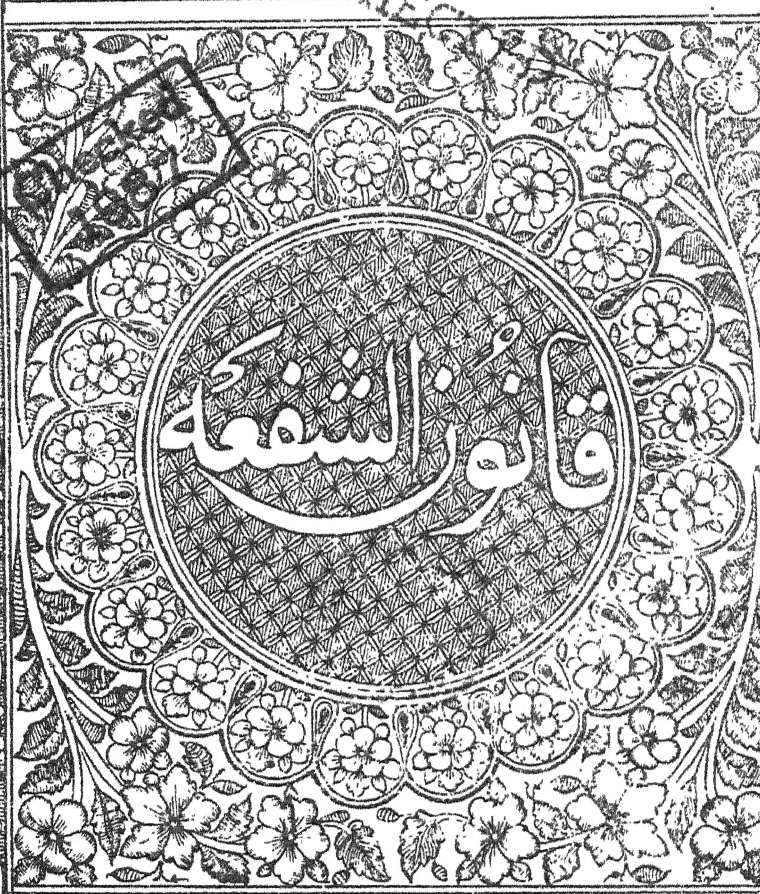 Checked
1987
قانُون الشفعہ